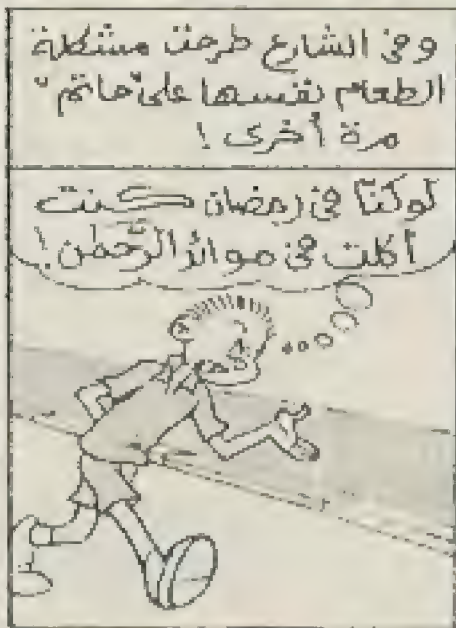 وفى الشارع طرحت مشكلة
الطعام نفسها على "حاتم"
مرة أخرى !
لوكنا فى رمضان كنت
أكلت فى موائد الرحمن !